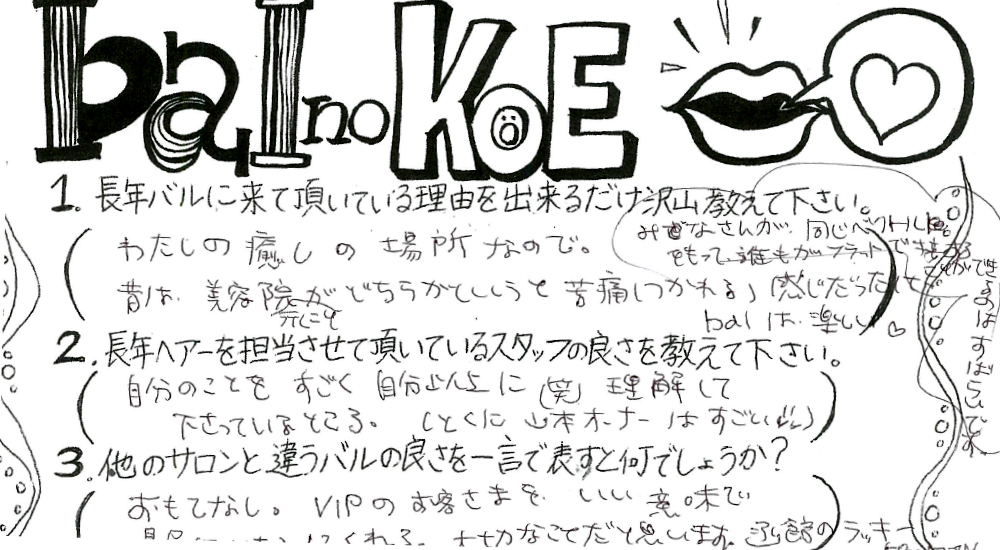 bal no KOE
1. 長年バルに来て頂いている理由を出来るだけ沢山教えて下さい。
わたしの癒しの場所なので。
みなさんが、同じベクトル
をもって、誰もがフラットで接する
ができるのはすばらしいですね
昔は、美容院が どちらかというと 苦痛(つかれる)感じだったけど
行くこと
balは、楽しい♡
2. 長年ヘアーを担当させて頂いているスタッフの良さを教えて下さい。
自分のことを すごく 自分以上に(笑) 理解して
下さっているところ。(とくに 山本オーナーはすごい!!)
3. 他のサロンと違うバルの良さを一言で表すと何でしょうか?
おもてなし。VIPのお客さまを、いい意味で
くれる。大切なことだと思います。 のラッキー